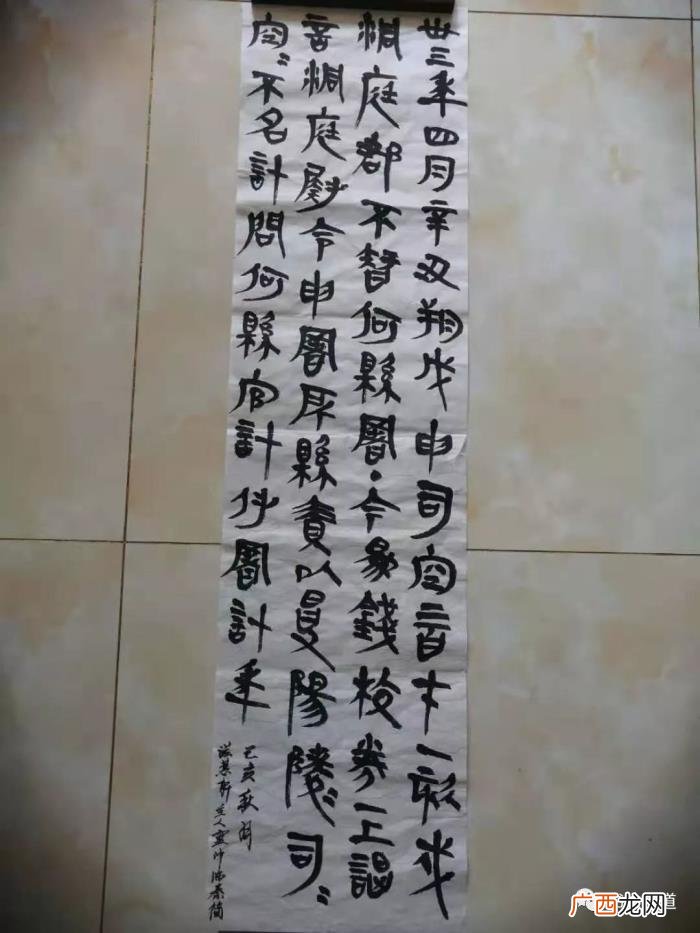 卅三年四月辛丑朔戊申司空 一 戍
洞庭郡不智何縣署·今為錢校券一上謁
言洞庭尉令申署所縣責以受陽陵〻司〻
空〻不名計問何縣官計付署計年
己亥秋月
秦簡
道
广西龙网